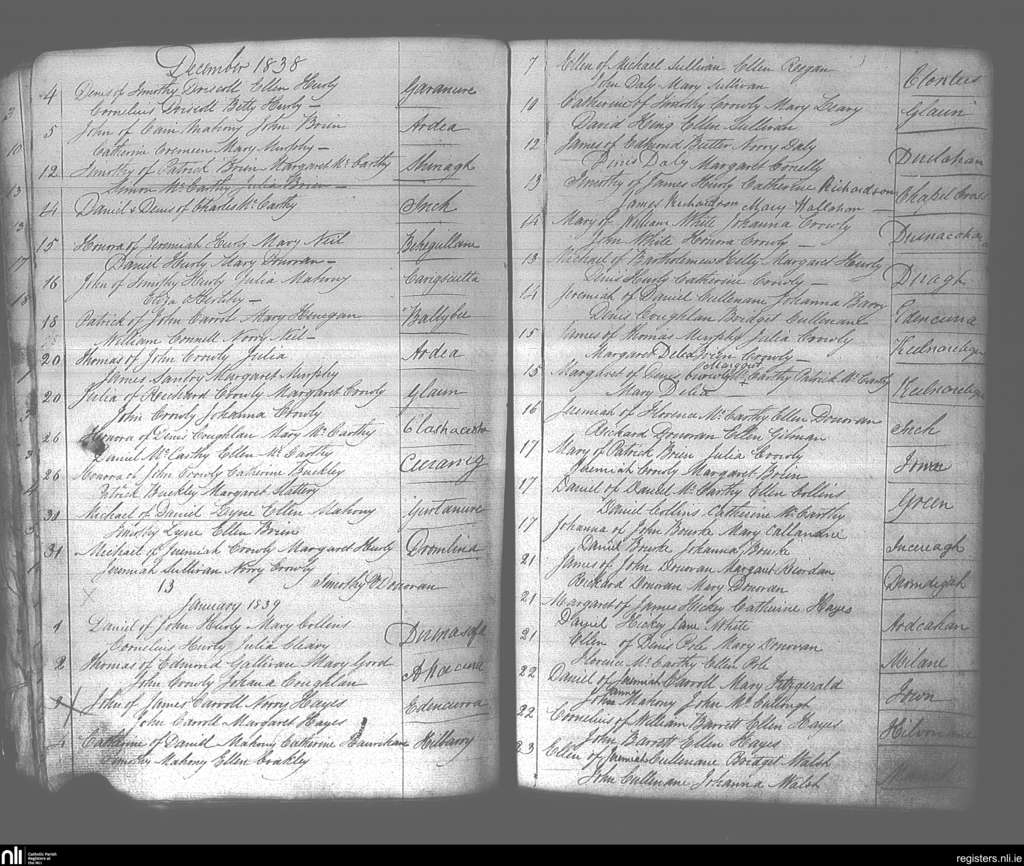 December 1838
4 Denis of Timothy Driscoll Ellen Hurly Garanure
Cornelius Driscoll Betty Hurly
5 John of Cain Mahony John Brien Ardea
Catherine Cremeen Mary Murphy
12 Timothy of Patrick Brien Margaret McCarthy
Simon McCarthy Julia Brien
14 Daniel & Denis of Charles McCarthy Inch
15 Honora of Jeremiah Hurly Mary Neil Behegullane
Daniel Hurly Mary Donovan
16 John of Timothy Hurly Julia Mahony
Eliza
18 Patrick of John Carrol Mary Finegan Ballybee
William Connell Norry Neil
20 Thomas of John Crowly Julia Ardea
James Santry Margaret Murphy
20 Julia of Richard Crowly Margaret Crowly Glaun
John Crowly Johanna Crowly
26 Honora of Denis Coughlan Mary McCarthy
Daniel McCarthy Ellen McCarthy
26 Honora of John Crowly Catherine Buckley
Patrick Buckley Margaret Slattery
30 Michael of Daniel Lyne Ellen Mahony
Lyne Ellen Brien
31 Michael of Jeremiah Crowly Margaret Hurly
Jeremiah Sullivan Norry Crowly
13 Timothy O'Donovan
January 1839
1 Daniel of John Hurly Mary Collins
Cornelius Hurly Julia Cleary
2 Thomas of Edmond Gallivan Mary
John Crowly Johana Coughlan
3 John of James Carroll Norry Hayes Edencurra
John Carroll Margaret Hayes
4 Catherine of Daniel Mahony Catherine Hourihane Kilbarry
Timothy Mahony Ellen Coakley
7 Ellen of Michael Sullivan Ellen Regan
John Daly Mary Sullivan
10 Catherine of Timothy Crowly Mary Leary Glaun
David King Ellen Sullivan
12 James of Edmond Butler Norry Daly
Denis Daly Margaret Conelly
13 Timothy of James Hurly Catherine Richardson Chapel Cross
James Richardson Mary Halloran
14 Mary of William White Johanna Crowly
John White Honora Crowly
13 Michael of Bartholemew Kelly Margaret Hurly
Denis Hurly Catherine Crowly
14 Jeremiah of Daniel Cullenane Johanna Barry Edencurra
Denis Coughlan Bridget Cullenane
15 James of Thomas Murphy Julia Crowly
Margaret Delea John Crowly
15 Margaret of Denis Crowly Margaret McCarthy Patrick McCarthy
Mary Delea
16 Jeremiah of Florence McCarthy Ellen Donovan Inch
Richard Donovan Ellen Gilman
17 Mary of Patrick Brien Julia Crowly Town
Jeremiah Crowly Margaret Brien
17 Daniel of Daniel McCarthy Ellen Collins Green
Daniel Collins Catherine McCarthy
17 Johanna of John Bourke Mary Callanane
Daniel Bourke Johanna Bourke
21 James of John Donovan Margaret Riordan
Richard Donovan Mary Donovan
21 Margaret of James Hickey Catherine Hayes Ardcahan
Daniel Hickey Jane White
21 Ellen of Denis Pole Mary Donovan
Florence McCarthy Ellen Pole
22 Daniel of Jeremiah Carroll Mary Fitzgerald Town
John Mahony John McCullough
22 Cornelius of William Barrett Ellen Hayes
John Barrett Ellen Hayes
23 Ellen of Jeremiah Cullenane Bridget Walsh
John Cullenane Johanna Walsh
nli Catholic Parish Registers at the NLI
registers.nli.ie